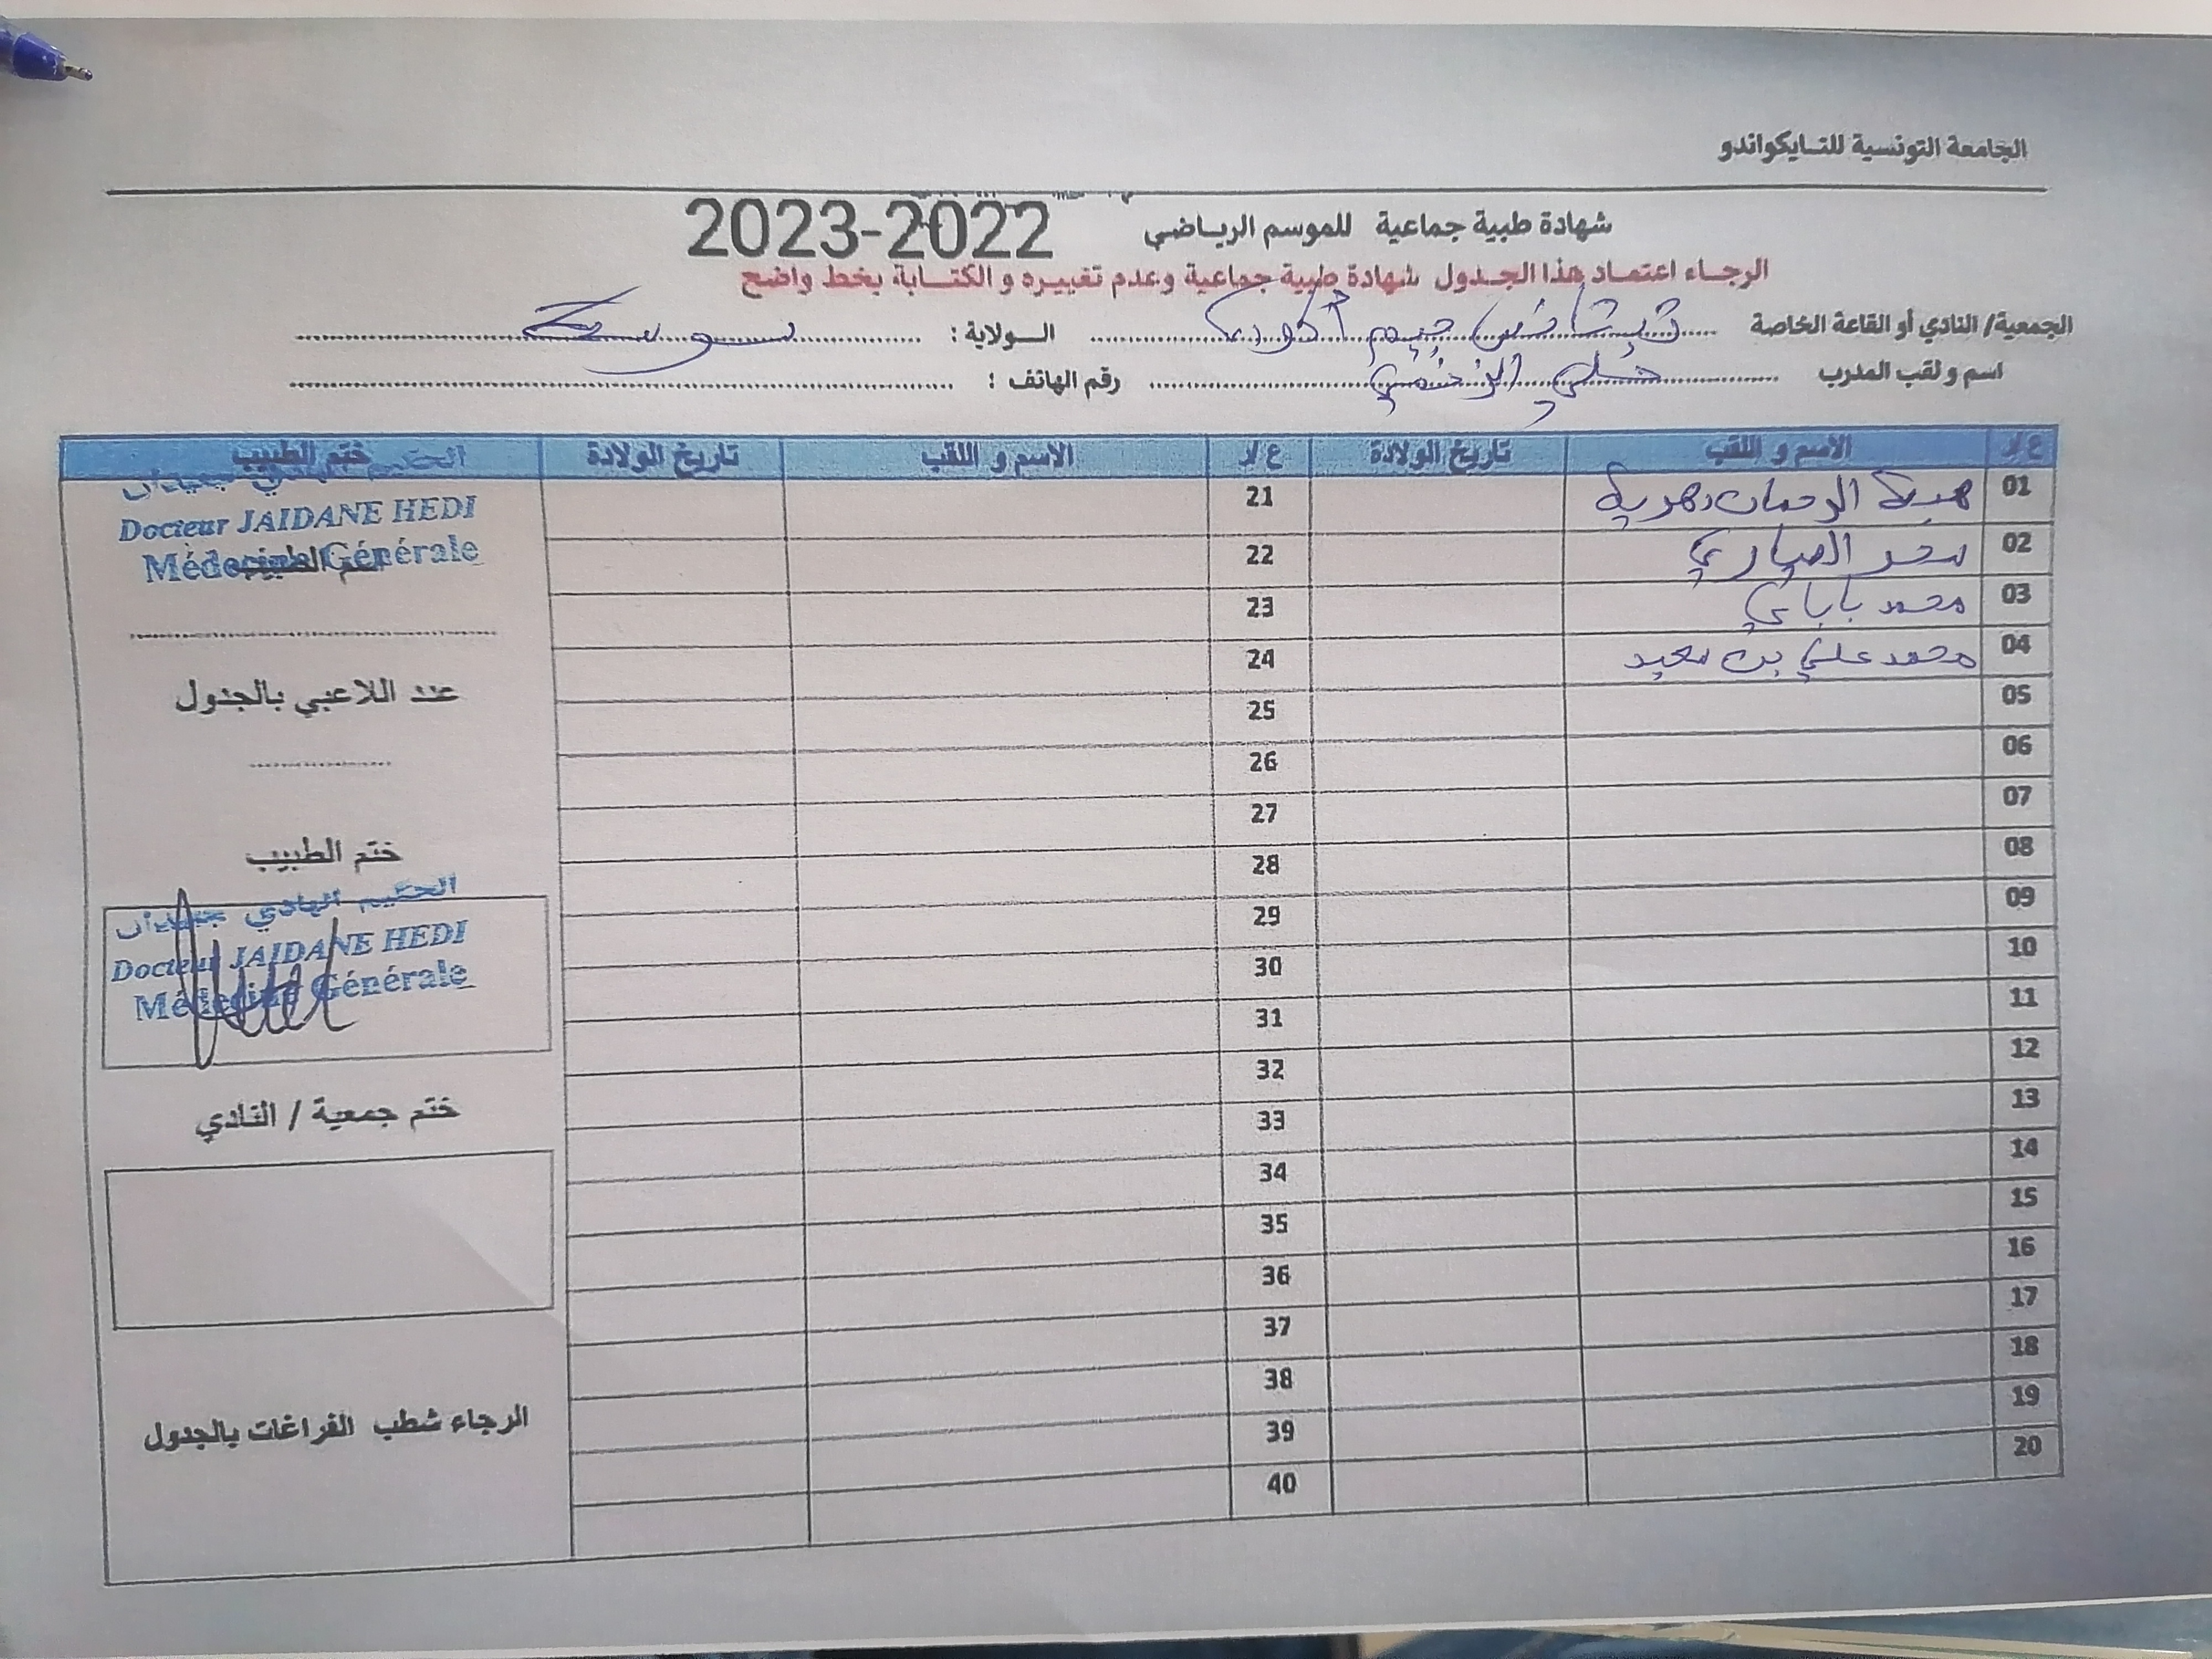 الجامعة التونسية للتـايكواندو
شهادة طبية جماعية للموسم الرياضي 2022-2023
الرجـاء اعتمـاد هذا الجـدول شهادة طبية جماعية وعدم تغييره و الكتـابة بخط واضح
الجمعية/ النادي أو القاعة الخاصة جيم الـولاية : سوسة
اسم و لقب المدرب علي رقم الهاتف :
ع/ر الاسم و اللقب تاريخ الولادة ع/ر الاسم و اللقب تاريخ الولادة ختم الطبيب
01 هبة الرحمان دهريبة 21
02 سحر الصياري 22
03 محمد باباي 23
04 محمد علي بن سعيد 24
05 25
06 26
07 27
08 28
09 29
10 30
11 31
12 32
13 33
14 34
15 35
16 36
17 37
18 38
19 39
20 40
الحكيم الهادي جعيدان
Docteur JAIDANE HEDI
Médecine Générale
عند اللاعبي بالجدول
ختم الطبيب
الحكيم الهادي جعيدان
Docteur JAIDANE HEDI
Médecine Générale
ختم جمعية / النادي
الرجاء شطب الفراغات بالجدول